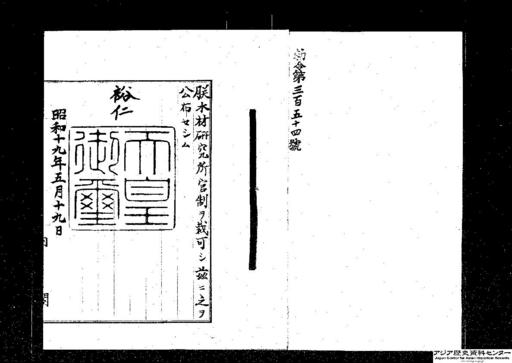 勅令第三百五十四號
朕木材研究所官制ヲ裁可シ茲ニ之ヲ
公布セシム
裕仁
天皇
御璽
昭和十九年五月十九日
内
閣
アジア歴史資料センター
Japan Center for Asian Historical Records